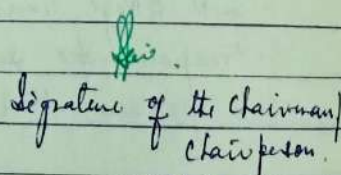 Signature of the Chairman/
Chairperson.